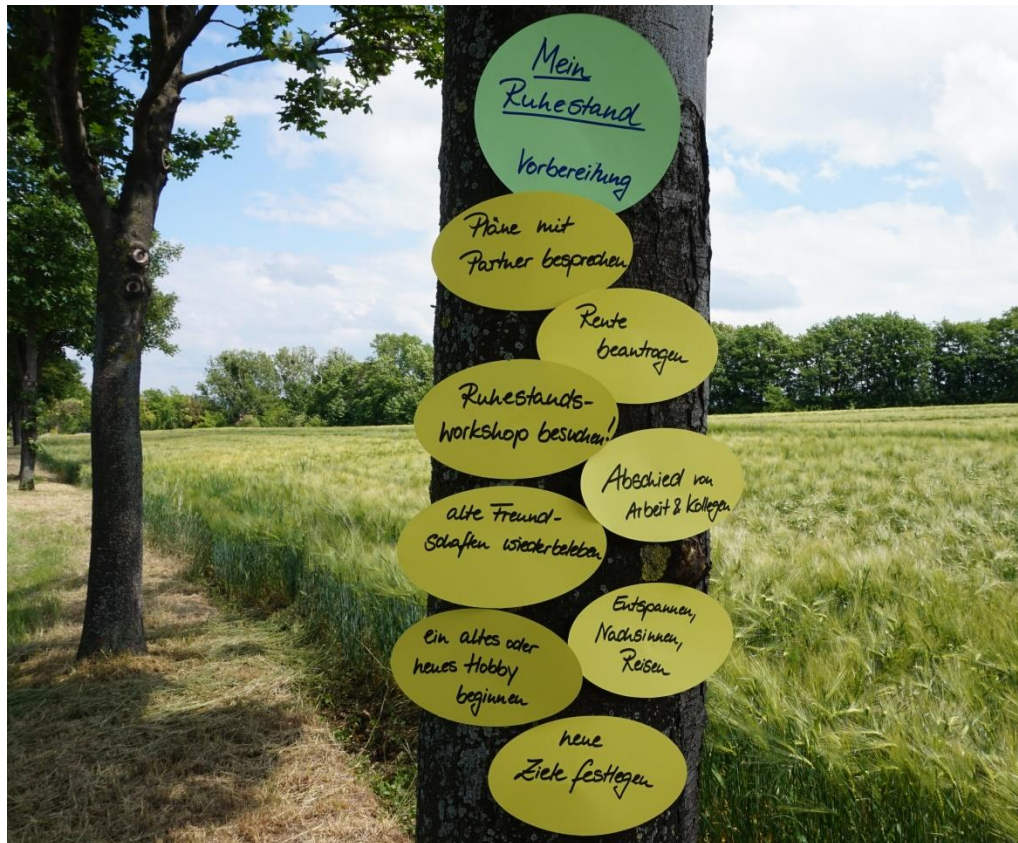 Mein
Ruhestand
Vorbereitung
Pläne mit
Partner besprechen
Rente
beantragen
Ruhestands-
workshop besuchen!
Abschied von
Arbeit & Kollegen
alte Freund-
schaften wiederbeleben
Entspannen,
Nachsinnen,
Reisen
ein altes oder
neues Hobby
beginnen
neue
Ziele festlegen